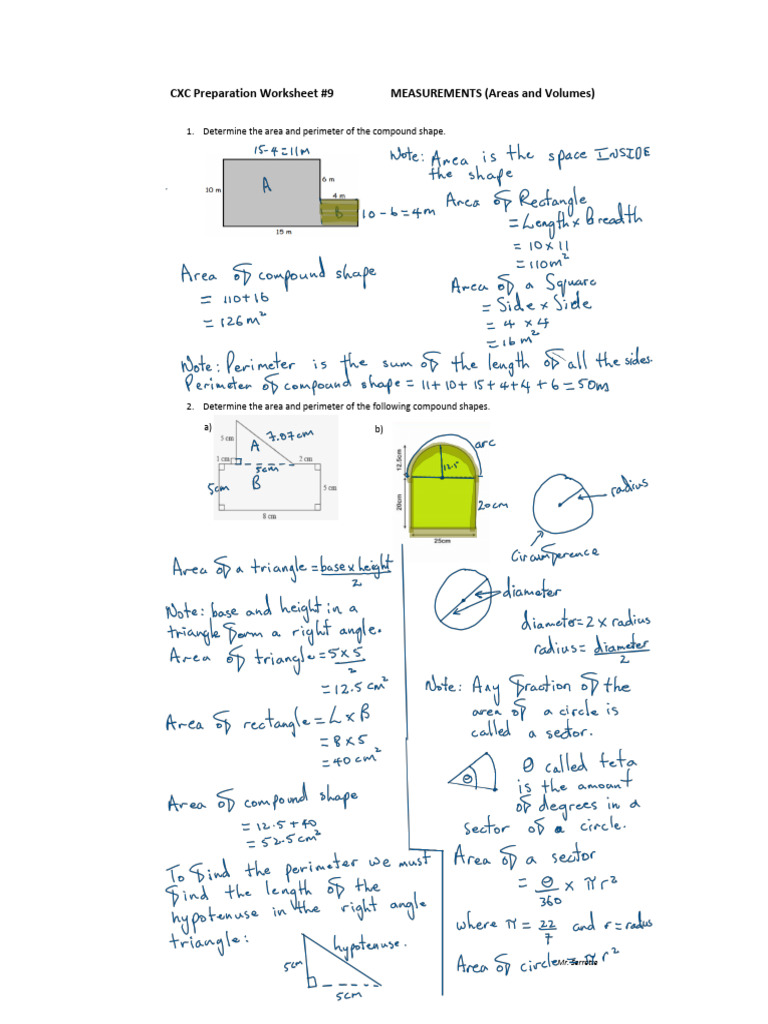 CXC Preparation Worksheet #9 MEASUREMENTS (Areas and Volumes)
1. Determine the area and perimeter of the compound shape.
15-4=11m
Note: Area is the space INSIDE
the shape
A
6 m
10 m
4 m
B
10-6=4m
15 m
Area of Rectangle
= Length x Breadth
= 10 x 11
= 110m²
Area of compound shape
= 110+16
= 126m²
Area of a Square
= Side x Side
= 4 x 4
= 16m²
Note: Perimeter is the sum of the length of all the sides.
Perimeter of compound shape = 11+10+15+4+4+6=50m
2. Determine the area and perimeter of the following compound shapes.
a)
5 cm
A
7.07cm
1 cm
5cm
2 cm
5cm
B
5 cm
8 cm
b)
arc
12.5cm
12.5
20cm
20cm
25cm
radius
Circumference
diameter
diameter=2 x radius
radius = diameter
2
Area of a triangle = base x height
2
Note: base and height in a
triangle form a right angle.
Area of triangle = 5 x 5
2
= 12.5cm²
Area of rectangle = L x B
= 8 x 5
= 40cm²
Area of compound shape
= 12.5+40
= 52.5cm²
To find the perimeter we must
find the length of the
hypotenuse in the right angle
triangle:
hypotenuse.
5cm
5cm
Note: Any fraction of the
area of a circle is
called a sector.
θ
θ called teta
is the amount
of degrees in a
sector of a circle.
Area of a sector
= θ x πr²
360
where π = 22 and r = radius
7
Area of circle = πr²
Mr.